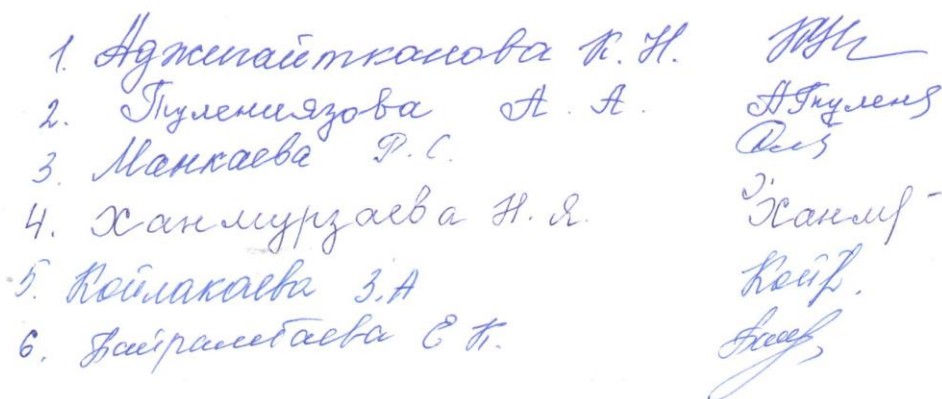 1. Аджигайтканова К. Н.
2. Тулениязова А. А. АТулен
3. Манкаева Р. С.
4. Ханмурзаева Н. Я. Ханм
5. Койлакаева З.А Кой
6. Байрамбаева Е К.